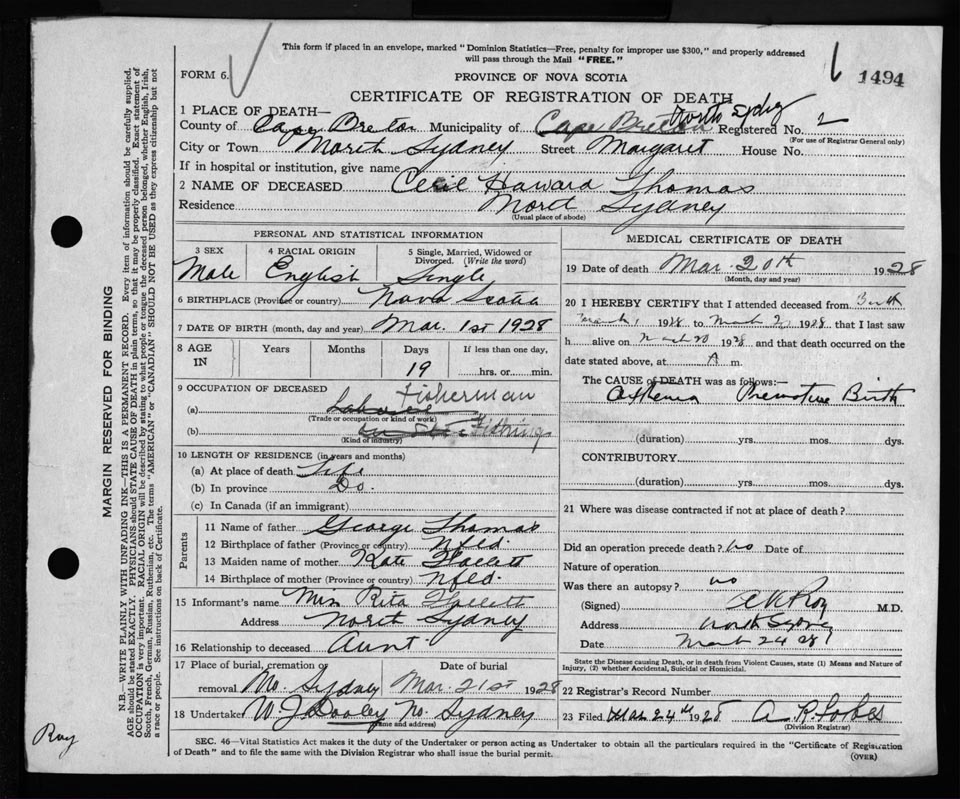 This form if placed in an envelope, marked "Dominion Statistics—Free, penalty for improper use $300," and properly addressed
will pass through the Mail "FREE."
FORM 6.
PROVINCE OF NOVA SCOTIA
1494
CERTIFICATE OF REGISTRATION OF DEATH
1 PLACE OF DEATH—
North Sydney
County of Cape Breton Municipality of Cape Breton Registered No. 2
(For use of Registrar General only)
City or Town North Sydney Street Margaret House No.
If in hospital or institution, give name
2 NAME OF DECEASED Cecil Howard Thomas
Residence Nord Sydney
(Usual place of abode)
PERSONAL AND STATISTICAL INFORMATION
3 SEX 4 RACIAL ORIGIN 5 Single, Married, Widowed or
Divorced. (Write the word)
Male English Single
6 BIRTHPLACE (Province or country) Nova Scotia
7 DATE OF BIRTH (month, day and year) Mar. 1st 1928
8 AGE Years Months Days If less than one day,
IN 19 hrs. or min.
9 OCCUPATION OF DECEASED
Fisherman
(a) Laborer
(Trade or occupation or kind of work)
(b) Fishing
(Kind of industry)
10 LENGTH OF RESIDENCE (in years and months)
(a) At place of death Life
(b) In province Do.
(c) In Canada (if an immigrant)
Parents
11 Name of father George Thomas
12 Birthplace of father (Province or country) Nfld.
13 Maiden name of mother Kate
14 Birthplace of mother (Province or country) Nfld.
15 Informant's name Mrs Rita
Address North Sydney
16 Relationship to deceased Aunt
17 Place of burial, cremation or Date of burial
removal No. Sydney Mar. 21st 1928
18 Undertaker W J Dooley No. Sydney
(name and address)
MEDICAL CERTIFICATE OF DEATH
19 Date of death Mar. 20th 1928
(Month, day and year)
20 I HEREBY CERTIFY that I attended deceased from Birth
March 1 1928 to March 20 1928 that I last saw
h alive on March 20 1928, and that death occurred on the
date stated above, at A m.
The CAUSE of DEATH was as follows:—
Asthenia Premature Birth
(duration) yrs. mos. dys.
CONTRIBUTORY
(duration) yrs. mos. dys.
21 Where was disease contracted if not at place of death?
Did an operation precede death? no Date of
Nature of operation
Was there an autopsy? no
(Signed) Roy M.D.
Address North Sydney
Date March 24 28
State the Disease causing Death, or in death from Violent Causes, state (1) Means and Nature of
Injury, (2) whether Accidental, Suicidal or Homicidal.
22 Registrar's Record Number
23 Filed Mar 24th 1928 A. R. Forbes
(Division Registrar)
SEC. 46—Vital Statistics Act makes it the duty of the Undertaker or person acting as Undertaker to obtain all the particulars required in the "Certificate of Registration
of Death" and to file the same with the Division Registrar who shall issue the burial permit.
(OVER)
MARGIN RESERVED FOR BINDING
N.B.—WRITE PLAINLY WITH UNFADING INK—THIS IS A PERMANENT RECORD. Every item of information should be carefully supplied.
AGE should be stated EXACTLY. PHYSICIANS should STATE CAUSE OF DEATH in plain terms, so that it may be properly classified. Exact statement of
OCCUPATION is very important. RACIAL ORIGIN will be described by stating to what people or tongue the deceased person belonged, whether English, Irish,
Scotch, French, German, Russian, Ruthenian, etc. The terms "AMERICAN" or "CANADIAN" SHOULD NOT BE USED as they express citizenship but not
a race or people. See instructions on back of Certificate.
Roy